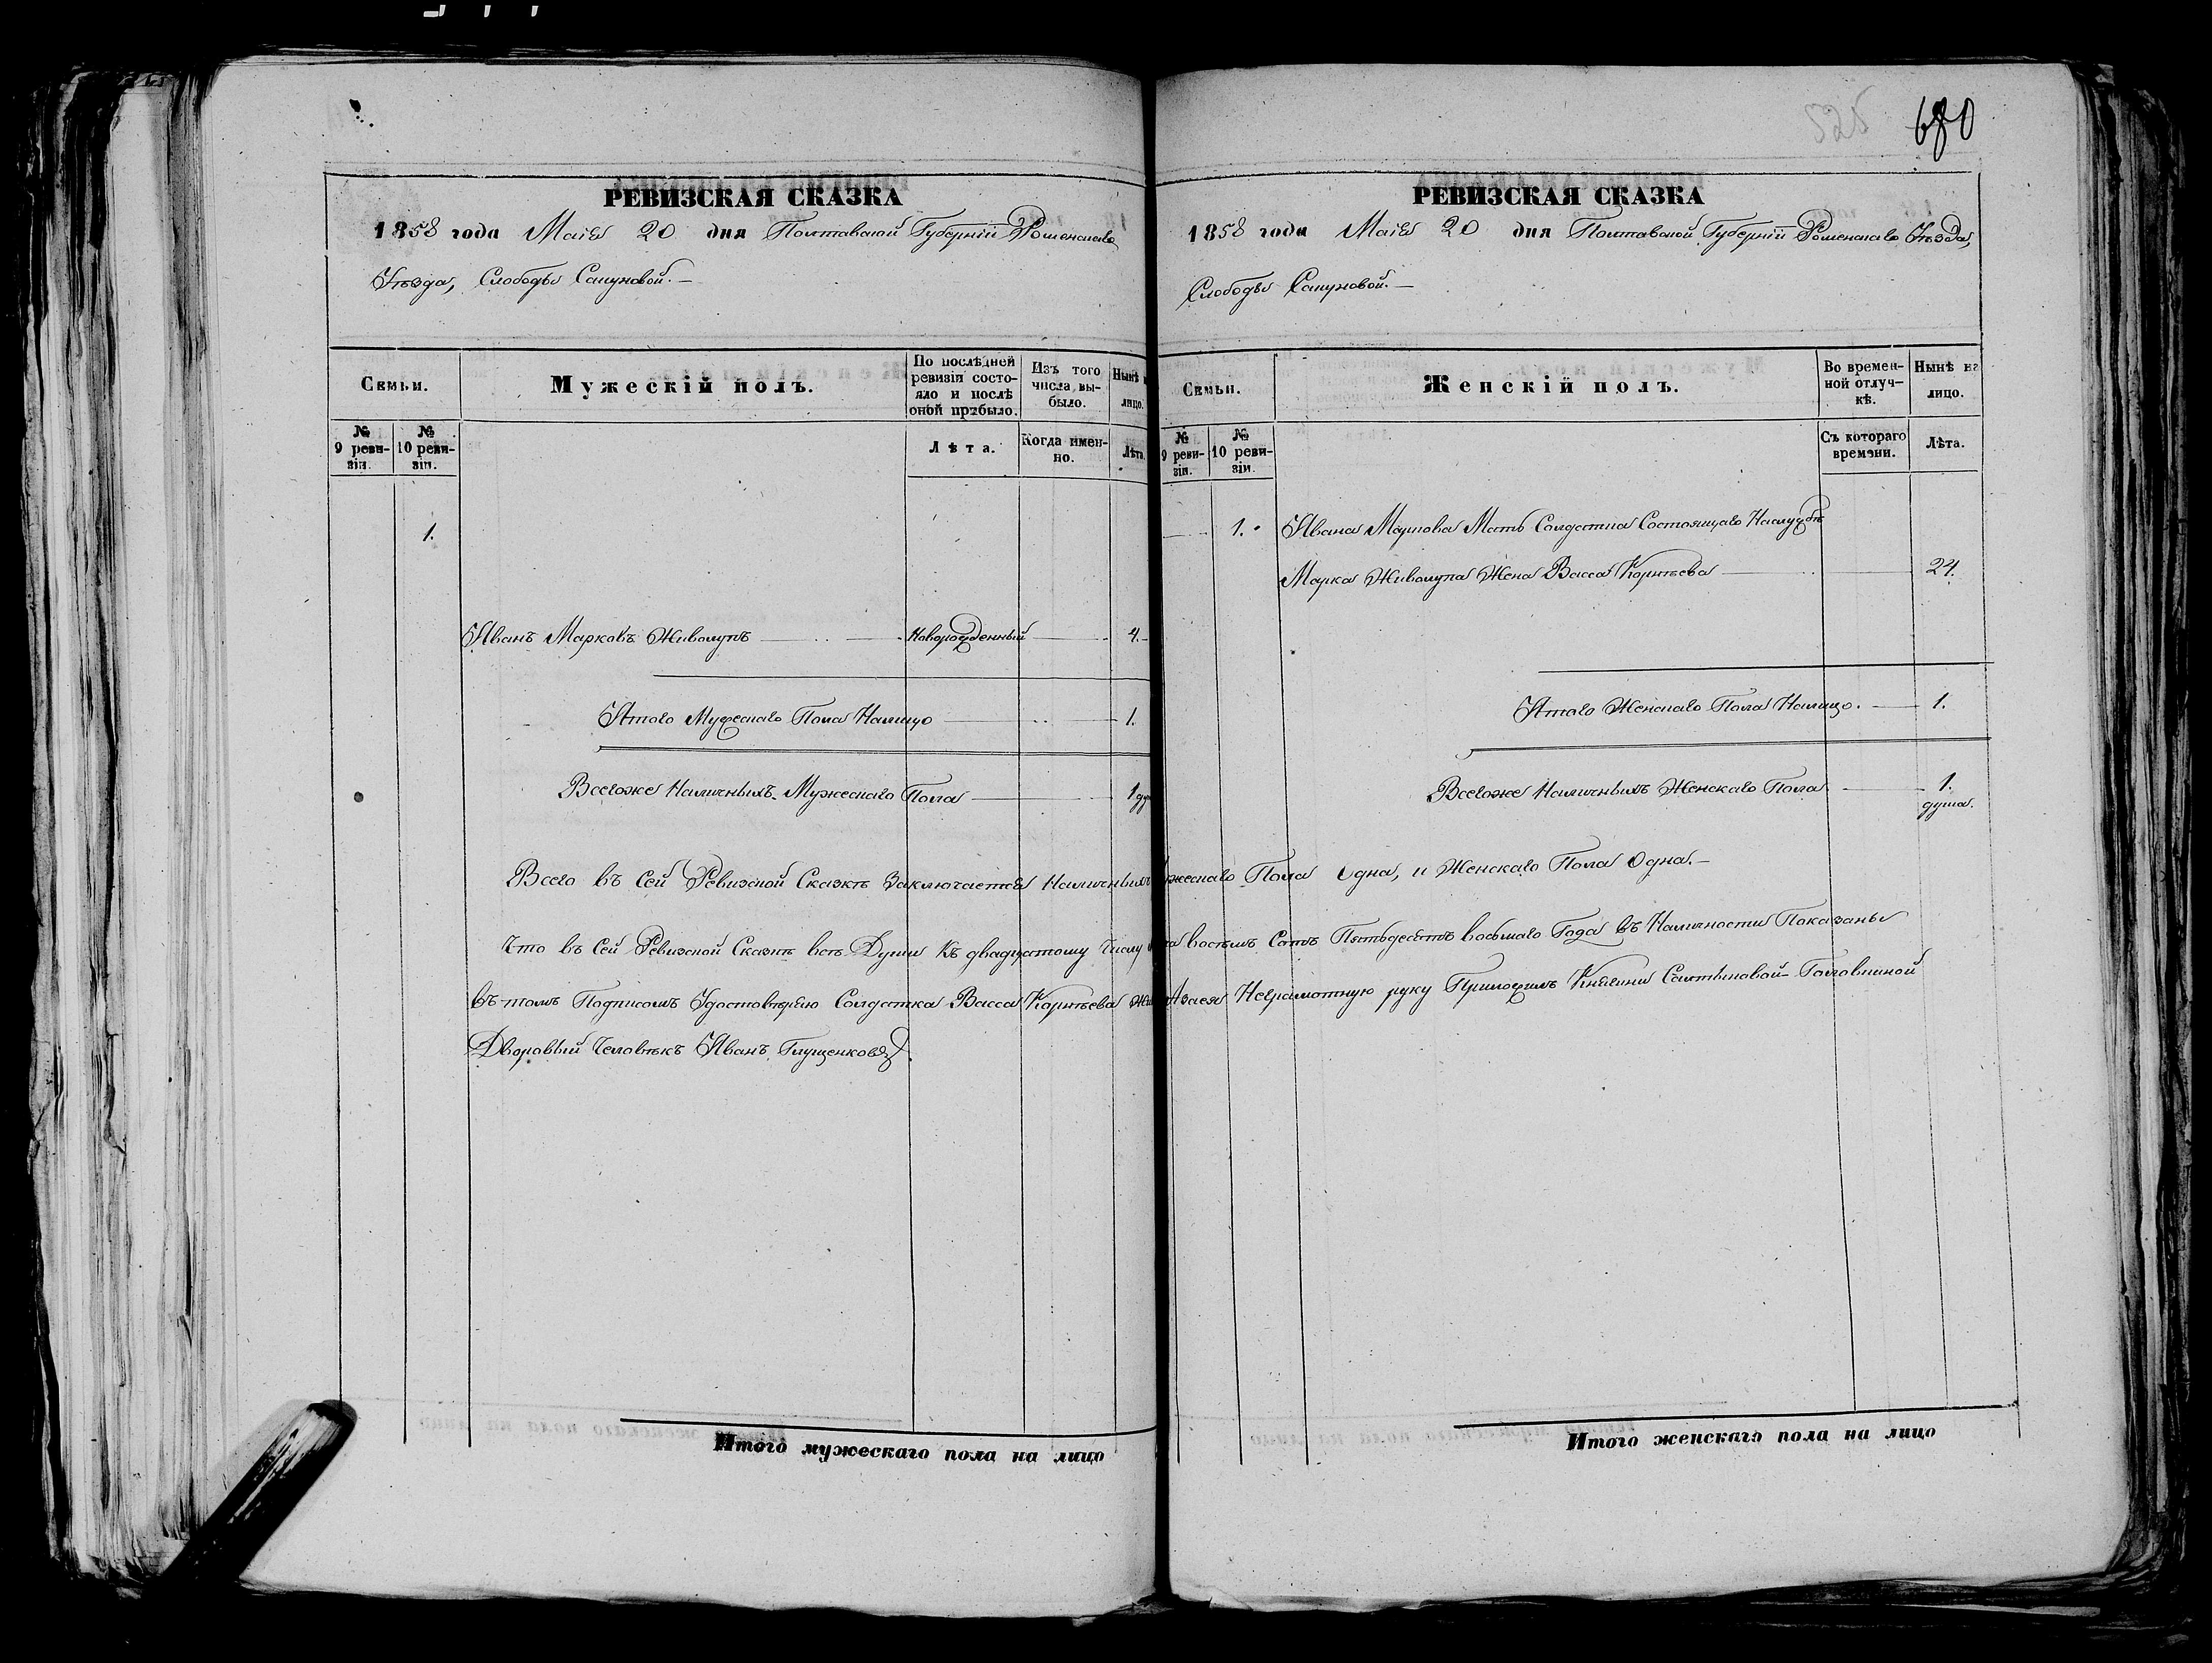 525 680
РЕВИЗСКАЯ СКАЗКА
1858 года Маія 20 дня Полтавской Губерніи Роменскаго
Уѣзда, Слободы Сапуновой. —
Семьи.
Мужескій полъ.
По послѣдней ревизіи состояло и послѣ оной прибыло.
Изъ того числа выбыло.
Нынѣ
лицо.
№ 9 ревизіи.
№ 10 ревизіи.
Лѣта.
Когда именно.
Лѣта.
1.
Иванъ Марковъ Живолупъ — Новорожденный — 4.
Итого Мужескаго Пола Налицо — 1.
Всегоже Наличныхъ Мужескаго Пола — 1
РЕВИЗСКАЯ СКАЗКА
1858 года Маія 20 дня Полтавской Губерніи Роменскаго Уѣзда,
Слободы Сапуновой. —
Семьи.
Женскій полъ.
Во временной отлучкѣ.
Нынѣ на
лицо.
№ 9 ревизіи.
№ 10 ревизіи.
Съ котораго времени.
Лѣта.
1. Ивана Маркова Мать Солдатка Состоящаго Наслужбѣ
Марка Живолупа Жена Васса Корнѣева — 24.
Итого Женскаго Пола Налицо. — 1.
Всегоже Наличныхъ Женскаго Пола — 1.
душа.
Всего въ Сей Ревизской Сказкѣ Заключается Наличныхъ жескаго Пола Одна, и Женскаго Пола Одна. —
Что въ Сей Ревизской Сказкѣ всѣ Души Къ двадцатому Числу восѣмъ Сотъ Пятьдесятъ восьмаго Года въ Наличности Показаны
въ томъ Подписомъ Удостовѣряю Солдатка Васса Корнѣева Азаея Неграмотную руку Приложилъ Княгини Салтыковой-Головкиной
Дворовый Человѣкъ Иванъ Глущенковъ.
Итого мужескаго пола на лицо
Итого женскаго пола на лицо